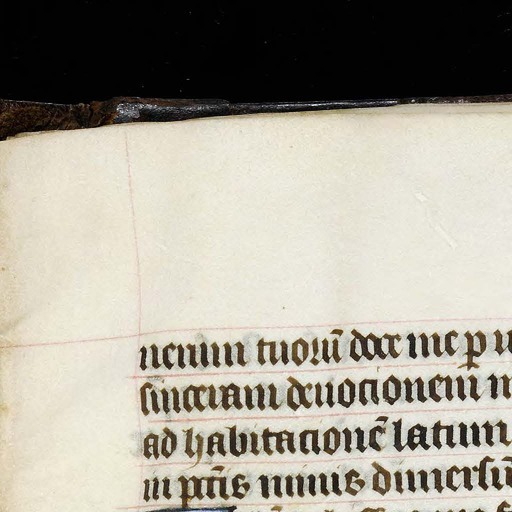 nenim tuorū doce me ꝑ
sinceram deuotionem
ad habitationē latium
in pctīs nimis dimersū